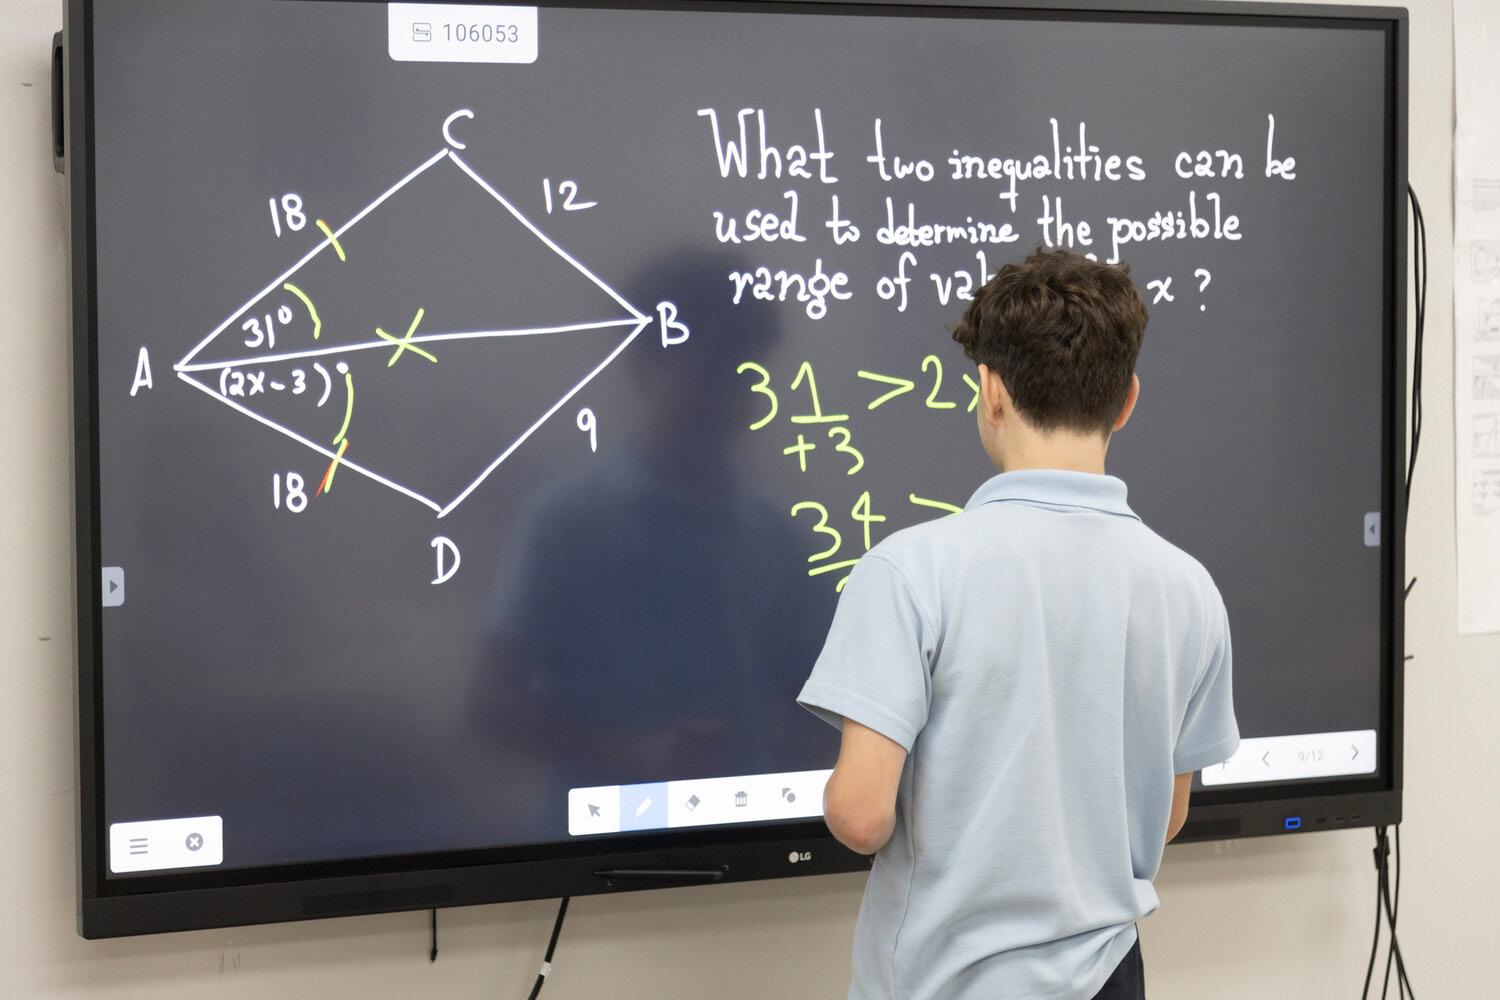 106053
C
18
12
31°
B
A
(2x-3)°
9
18
D
What two inequalities can be
used to determine the possible
range of x ?
31 > 2x
+3
34 >
9/12
LG